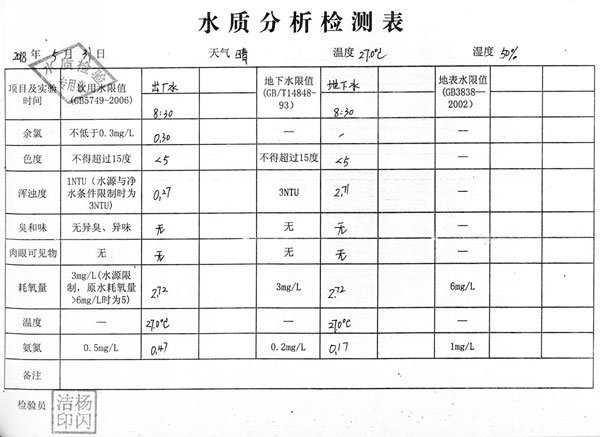 水质分析检测表
2018 年 5 月 31 日 天气 晴 温度 27.0℃ 湿度 50%
水质检验
专用章
项目及实验时间 饮用水限值(GB5749-2006) 出厂水 8:30 地下水限值(GB/T14848-93) 地下水 8:30 地表水限值(GB3838—2002)
余氯 不低于0.3mg/L 0.30 — - —
色度 不得超过15度 <5 不得超过15度 <5 —
浑浊度 1NTU（水源与净水条件限制时为3NTU) 0.27 3NTU 2.71 —
臭和味 无异臭、异味 无 无 无 —
肉眼可见物 无 无 无 无 —
耗氧量 3mg/L(水源限制，原水耗氧量>6mg/L时为5) 2.72 3mg/L 2.72 6mg/L
温度 — 27.0℃ — 27.0℃ —
氨氮 0.5mg/L 0.47 0.2mg/L 0.17 1mg/L
备注
检验员
杨闪洁印